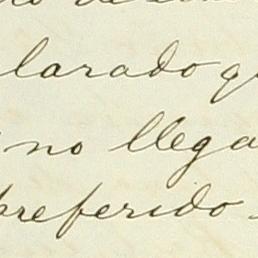 larado q
no llega
preferido